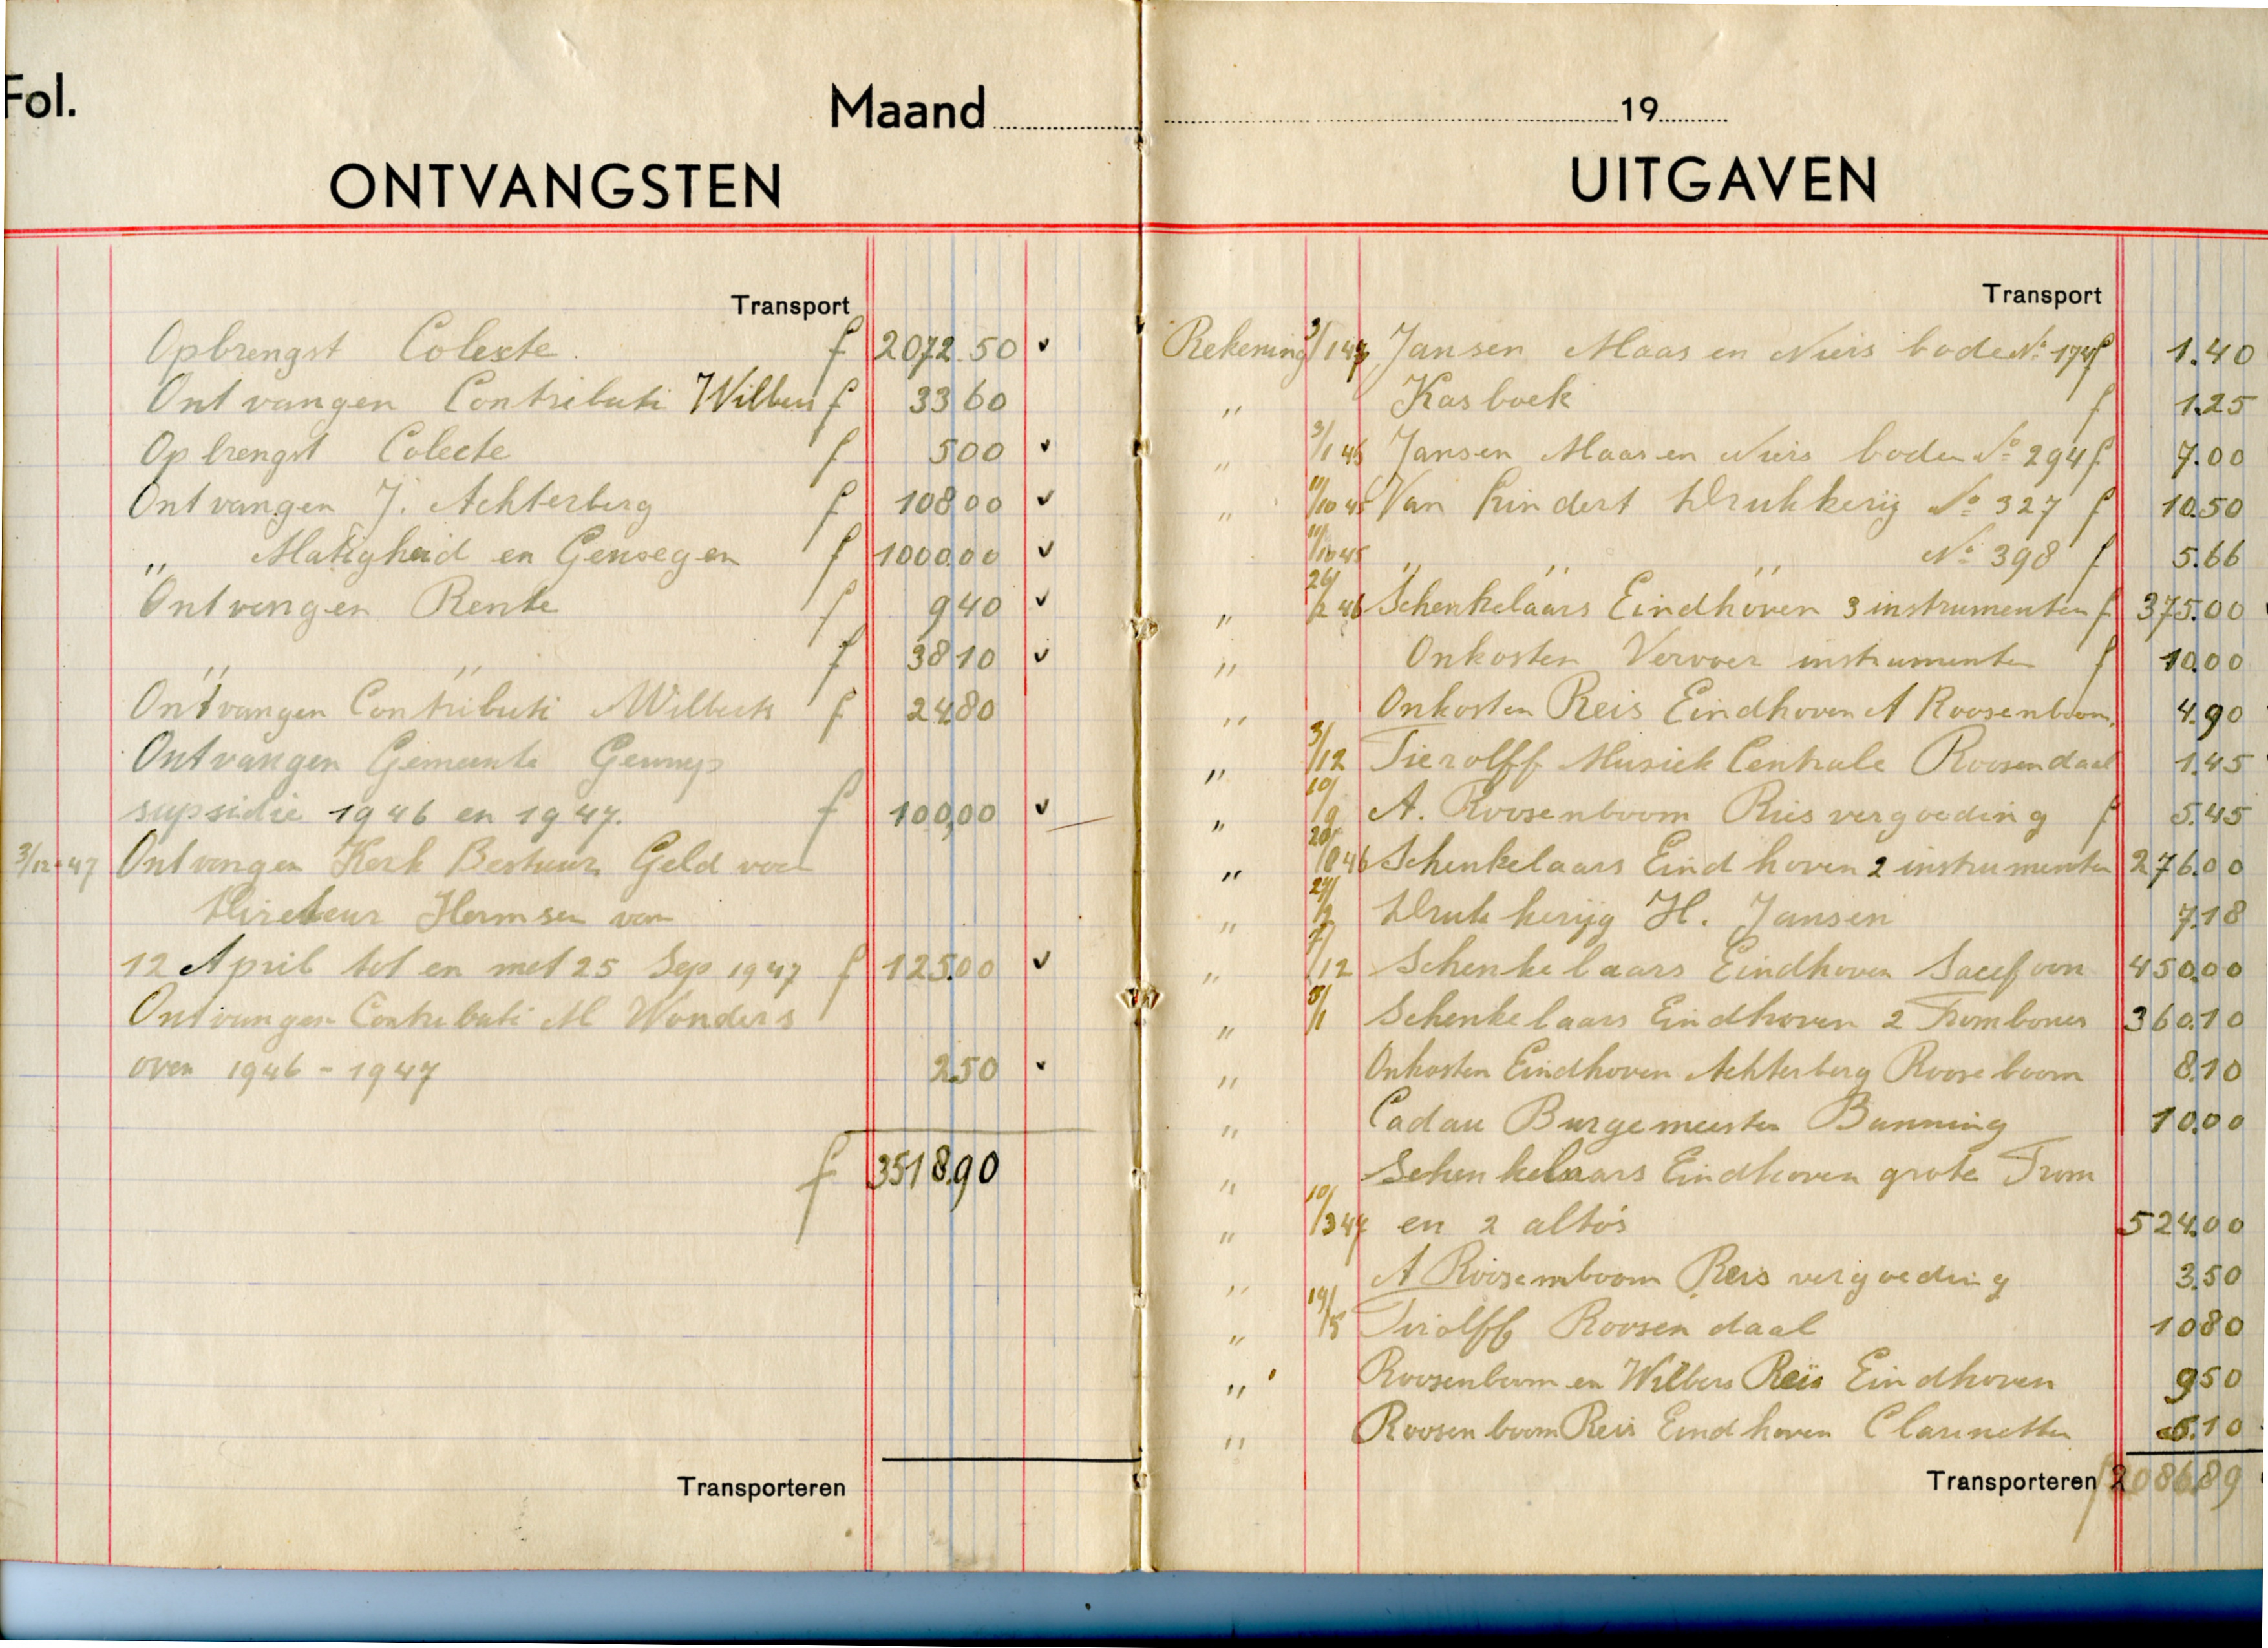 Fol.
Maand
ONTVANGSTEN
Transport
Opbrengst Colecte. f 2072.50 ✓
Ontvangen Contributi Wilbers f 33 60
Opbrengst Colecte f 5 00 ✓
Ontvangen J. Achterberg f 108 00 ✓
,, Matigheid en Genoegen f 1000.00 ✓
Ontvangen Rente f 9 40 ✓
,, ,, f 38 10 ✓
Ontvangen Contributi Wilbers f 24.80
Ontvangen Gemeente Gennep
supsidie 1946 en 1947. f 100,00 ✓
3/12-47 Ontvangen Kerk Bestuur Geld voor
Direkeur Hermsen van
12 April tot en met 25 Sep 1947 f 125.00 ✓
Ontvangen Contributi M Wonders
over 1946 - 1947 2.50
f 3518.90
Transporteren
19
UITGAVEN
Transport
Rekening Jansen Maas en Niers bode No 174 f 1.40
,, Kasboek f 1.25
,, 3/1 46 Jansen Maas en Niers bode No 294 f 7.00
,, 11/10 45 Van Lindert Drukkerij No 327 f 10.50
11/10 45 ,, ,, ,, No 398 f 5.66
,, 26/2 46 Schenkelaars Eindhoven 3 instrumenten f 375.00
,, Onkosten Vervoer instrumenten f 10.00
,, Onkosten Reis Eindhoven A Roosenboom 4.90
,, 3/12 Tierolff Musiek Centrale Roosendaal 1.45
,, 10/9 A. Roosenboom Reis vergoeding f 5.45
,, 20/8 46 Schenkelaars Eindhoven 2 instrumenten 276.00
,, Drukkerijg H. Jansen 7.18
,, 7/12 Schenkelaars Eindhoven Sacefoon 450.00
,, Schenkelaars Eindhoven 2 Trombones 360.10
,, Onkosten Eindhoven Achterberg Rooseboom 8.10
,, Cadau Burgemeester Banning 10.00
,, Schenkelaars Eindhoven grote Trom
,, 10/3 47 en 2 alto's 524.00
,, A Roosemboom Reis vergoeding 3.50
,, 19/5 Tirolff Roosendaal 10 80
,, Roosenboom en Wilbers Reis Eindhoven 9 50
,, Roosenboom Reis Eindhoven Clarinetten 5.10
Transporteren f 2086.89